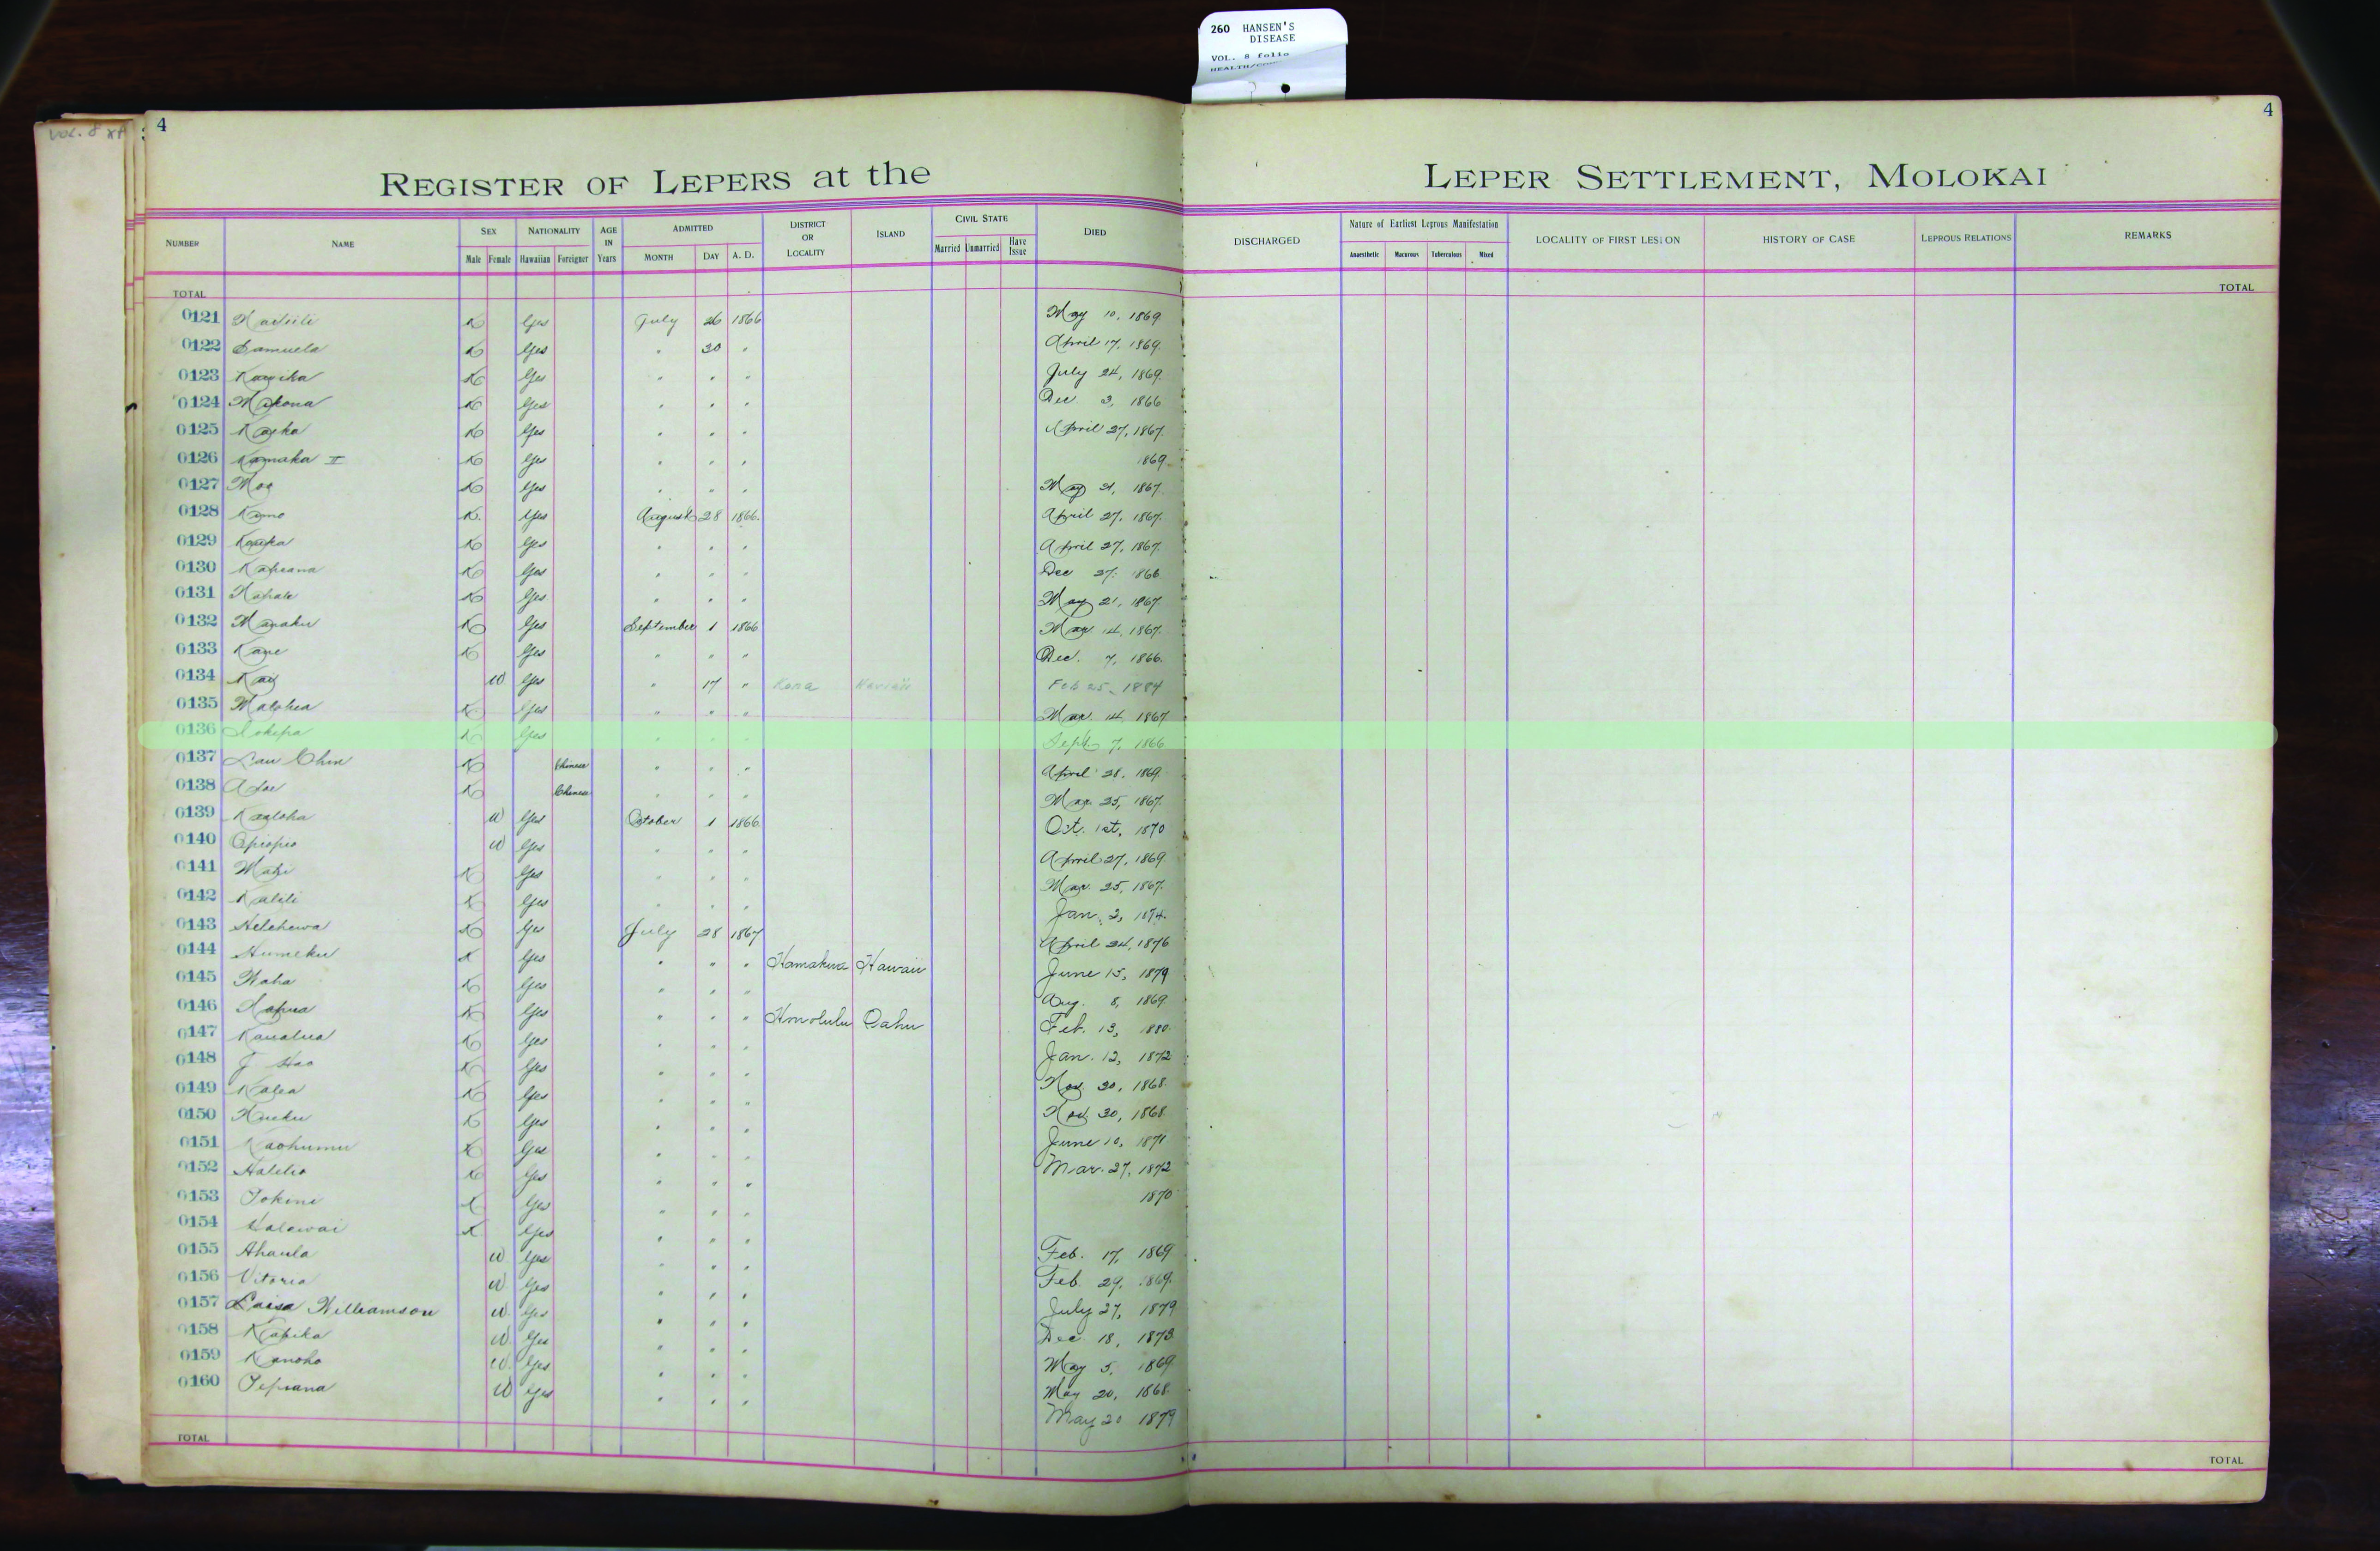 260 HANSEN'S
DISEASE
VOL. 8 folio
4
4
REGISTER OF LEPERS at the
LEPER SETTLEMENT, MOLOKAI
NUMBER NAME SEX Male Female NATIONALITY Hawaiian Foreigner AGE IN Years ADMITTED MONTH DAY A. D. DISTRICT OR LOCALITY ISLAND CIVIL STATE Married Unmarried Have Issue DIED DISCHARGED Nature of Earliest Leprous Manifestation Anaesthetic Macurous Tuberculous Mixed LOCALITY OF FIRST LESION HISTORY OF CASE LEPROUS RELATIONS REMARKS
TOTAL TOTAL
0121 K Yes July 26 1866 May 10, 1869
0122 Samuela K Yes " 30 " April 17, 1869.
0123 K Yes " " " July 24, 1869.
0124 Makona K Yes " " " Dec 3, 1866
0125 K Yes " " " April 27, 1867.
0126 Kamaka II K Yes " " " 1869
0127 Moa K Yes " " " May 21, 1867.
0128 K. Yes August 28 1866. April 27, 1867.
0129 K Yes " " " April 27, 1867.
0130 Kapeana K Yes " " " Dec 27, 1866
0131 K Yes " " " May 21, 1867.
0132 K Yes September 1 1866 Mar 14, 1867.
0133 K Yes " " " Dec. 7, 1866.
0134 W Yes " 17 " Kona Hawaii Feb 25, 1884
0135 K Yes " " " Mar. 14, 1867
0136 Iokepa K Yes " " " Sept. 7, 1866
0137 Lau Chin K Chinese " " " April 28, 1869.
0138 K Chinese " " " Mar 25, 1867.
0139 Kaaloha W Yes October 1 1866. Oct. 1st, 1870
0140 Opiopio W Yes " " " April 27, 1869.
0141 K Yes " " " Mar. 25, 1867.
0142 K Yes " " " Jan. 3, 1874.
0143 Helehewa K Yes July 28 1867 April 24, 1876
0144 Humeku K Yes " " " Hamakua Hawaii June 15, 1879
0145 K Yes " " " Aug. 8, 1869.
0146 K Yes " " " Honolulu Oahu Feb. 13, 1880.
0147 Kaualua K Yes " " " Jan. 12, 1872
0148 K Yes " " " Nov. 30, 1868.
0149 Kalea K Yes " " " Nov. 30, 1868.
0150 K Yes " " " June 10, 1871
0151 Kaohumu K Yes " " " Mar. 27, 1872
0152 Halelio K Yes " " " 1870
0153 K Yes " " "
0154 Halawai K Yes " " " Feb. 17, 1869
0155 Ahaula W Yes " " " Feb 29, 1869.
0156 Vitoria W Yes " " " July 27, 1879
0157 Luisa Williamson W Yes " " " Dec. 18, 1873.
0158 Kapeka W Yes " " " May 5, 1869
0159 Kanoho W Yes " " " May 20, 1868.
0160 W Yes " " " May 20 1879
TOTAL TOTAL